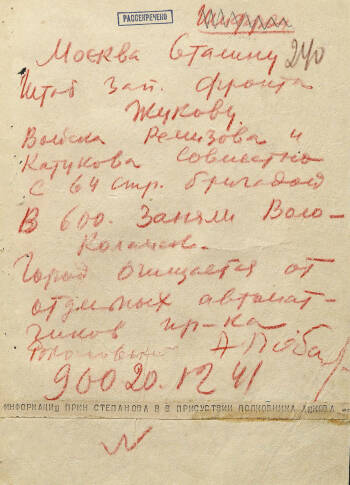 РАССЕКРЕЧЕНО
Москва Сталину 240
Штаб Зап. фронта
Жукову.
Войска Ремизова и
Катукова совместно
с 64 стр. бригадой
в 600. заняли Воло-
коламск.
Город очищается от
отдельных автомат-
чиков пр-ка
900 20.12 41
ИНФОРМАЦИЮ ПРИН СТЕПАНОВА В В ПРИСУТСТВИИ ПОЛКОВНИКА